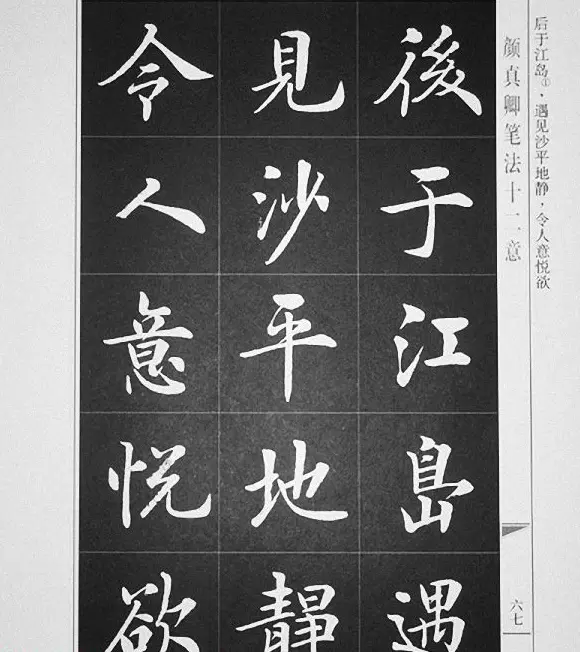 后于江岛①，遇见沙平地静，令人意悦欲
颜真卿笔法十二意
六七
後于江島遇
見沙平地靜
令人意悅欲